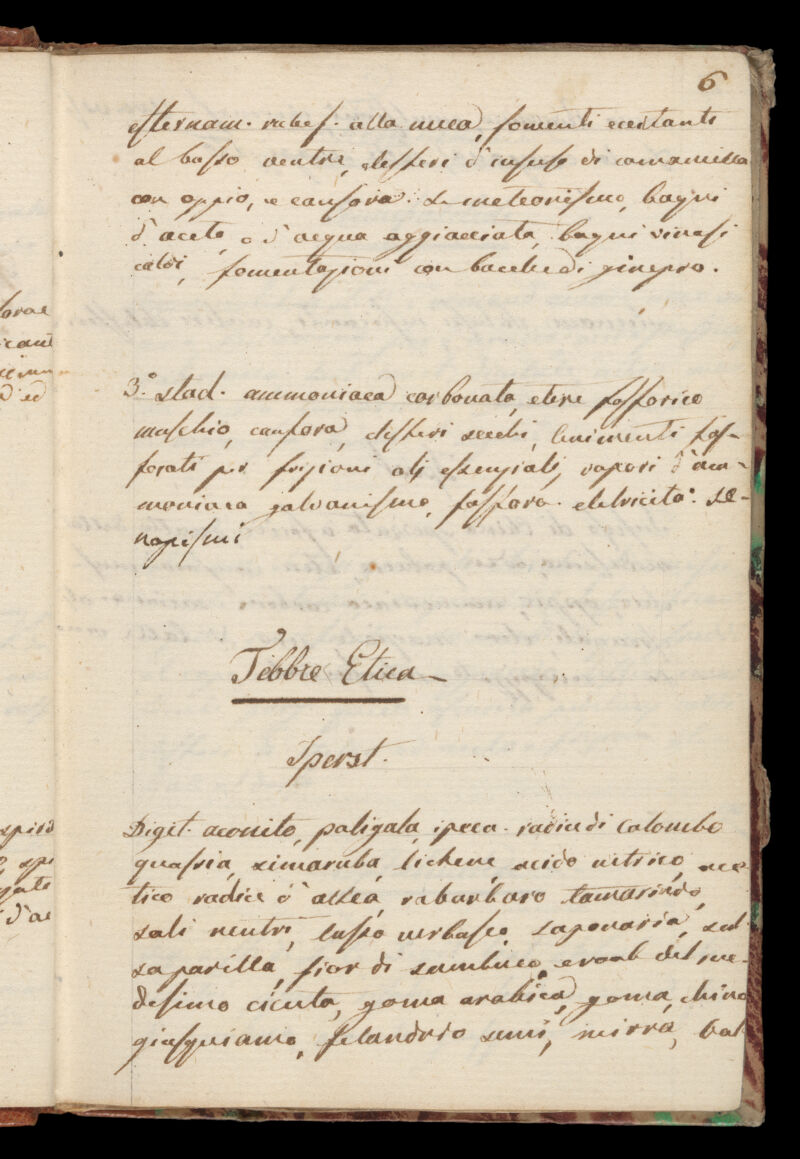 6
esternam. rubef. alla nuca, fomenti eccitanti
al basso ventre, clisteri d'infuso di camamilla
con oppio, e canfora. Le meteorismo, bagni
d'aceto, o d'acqua aggiacciata, bagni vinosi
caldi, fomentazioni con bacche di ginepro.
3.° stad. ammoniaca carbonata, etere fosforico
muschio, canfora, clisteri secchi, linimenti fos-
forati per frizioni olj essenziali, vapori d'am-
moniaca galvanismo, fosforo. eletricità. se-
napismi
Febbre Etica
Iperst.
Digit. aconito, poligala, ipeca. radice di Colombo
quassia, simaruba, lichene, acido nitrico, ace-
tico radice d'altea, rabarbaro tamarindo,
sali neutri, tasso verbasco, saponaria, sal
saparilla, fior di sambuco, e roob del me-
desimo cicuta, goma arabica, goma, chino
giusquiamo, felandrio semi, mirra, bal